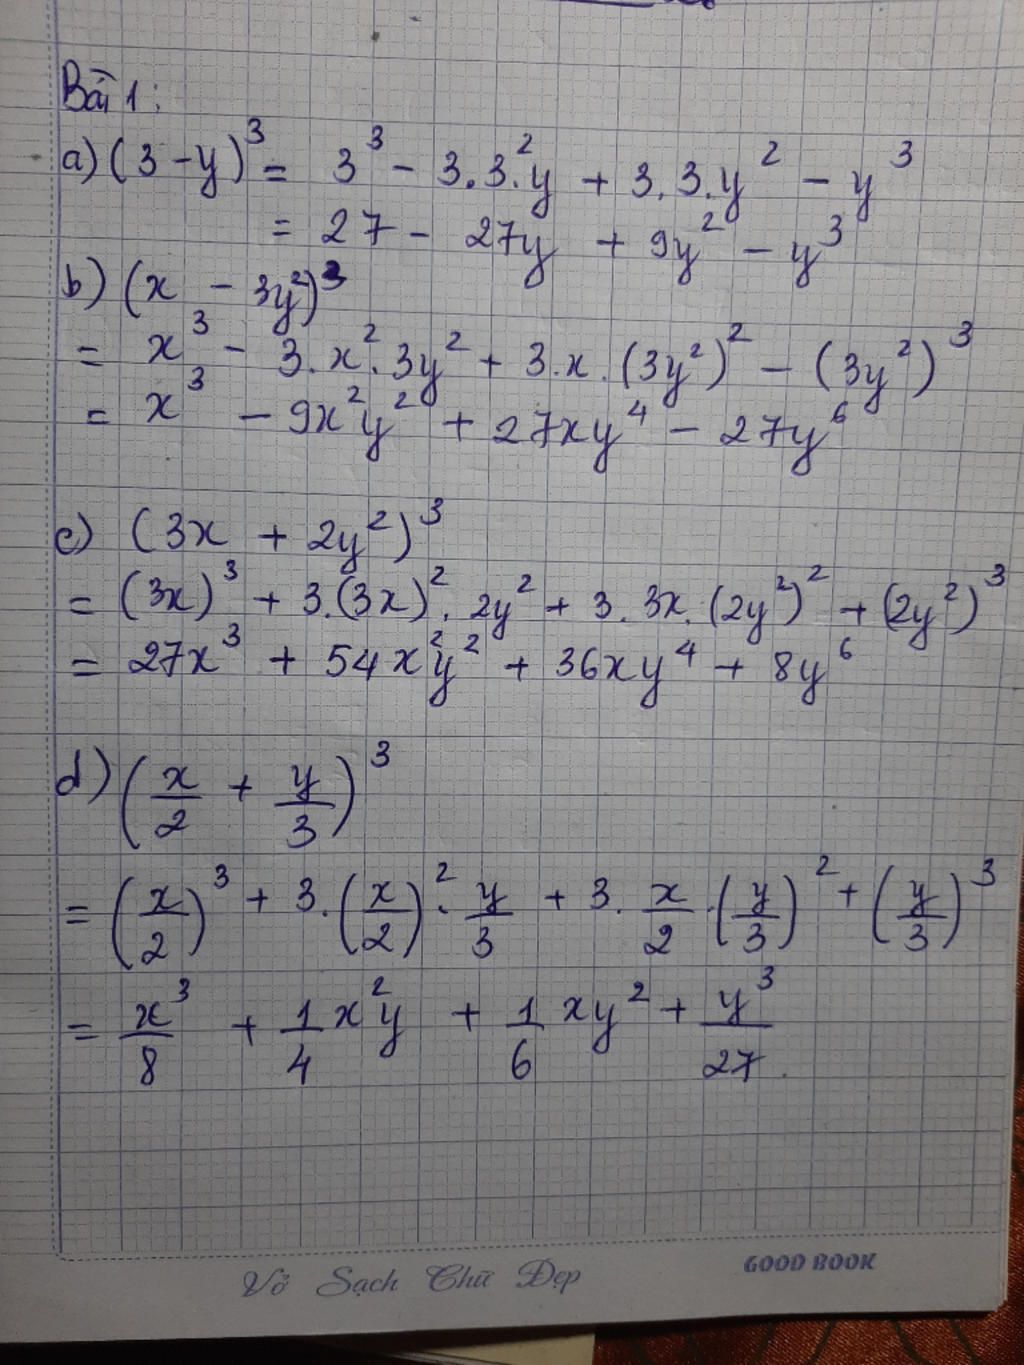 Bài 1:
a) (3 - y)³ = 3³ - 3.3².y + 3.3.y² - y³
= 27 - 27y + 9y² - y³
b) (x - 3y²)³
= x³ - 3.x².3y² + 3.x.(3y²)² - (3y²)³
= x³ - 9x²y² + 27xy⁴ - 27y⁶
c) (3x + 2y²)³
= (3x)³ + 3.(3x)².2y² + 3.3x.(2y²)² + (2y²)³
= 27x³ + 54x²y² + 36xy⁴ + 8y⁶
d) (x/2 + y/3)³
= (x/2)³ + 3.(x/2)².y/3 + 3.x/2.(y/3)² + (y/3)³
= x³/8 + 1/4 x²y + 1/6 xy² + y³/27.
Vở Sạch Chữ Đẹp
GOOD BOOK